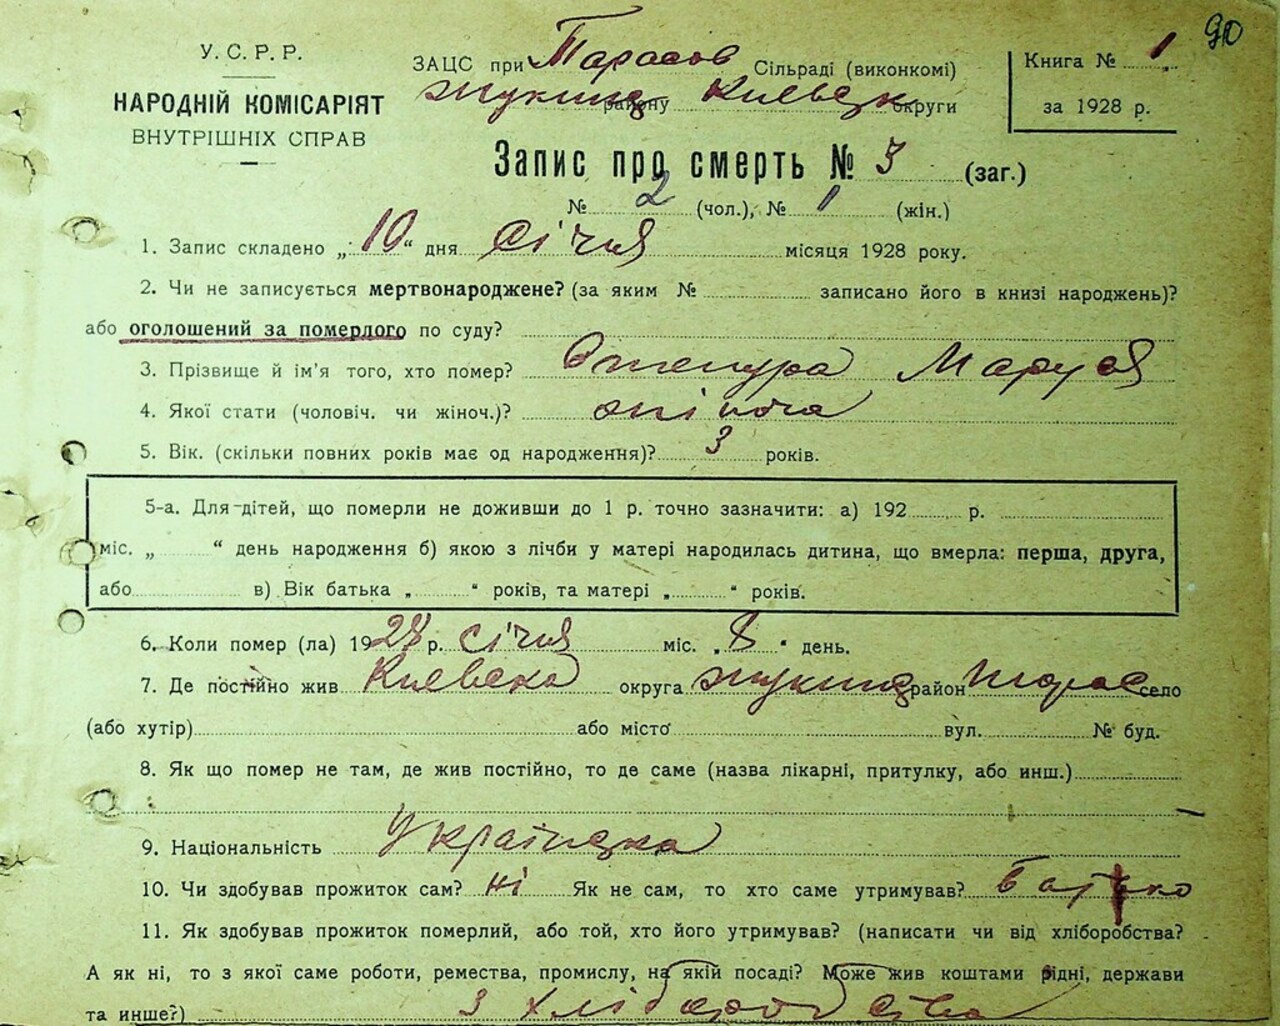 90
У.С.Р.Р.
НАРОДНІЙ КОМІСАРІЯТ
ВНУТРІШНІХ СПРАВ
ЗАЦС при Тарасов Сільраді (виконкомі)
Жукинс району Київськ округи
Книга № 1
за 1928 р.
Запис про смерть № 3 (заг.)
№ 2 (чол.), № 1 (жін.)
1. Запис складено „10“ дня Січня місяця 1928 року.
2. Чи не записується мертвонароджене? (за яким № записано його в книзі народжень)?
або оголошений за померлого по суду?
3. Прізвище й ім'я того, хто помер? Маруся
4. Якої стати (чоловіч. чи жіноч.)? жіноча
5. Вік. (скільки повних років має од народження)? 3 років.
5-а. Для дітей, що померли не доживши до 1 р. точно зазначити: а) 192 р.
міс. „ “ день народження б) якою з лічби у матері народилась дитина, що вмерла: перша, друга,
або в) Вік батька „ “ років, та матері „ “ років.
6. Коли помер (ла) 1928 р. січня міс. „8“ день.
7. Де постійно жив Київська округа Жукинс район Тарас село
(або хутір) або місто вул. № буд.
8. Як що помер не там, де жив постійно, то де саме (назва лікарні, притулку, або инш.)
9. Національність Українка
10. Чи здобував прожиток сам? ні Як не сам, то хто саме утримував? батько
11. Як здобував прожиток померлий, або той, хто його утримував? (написати чи від хліборобства?
А як ні, то з якої саме роботи, ремества, промислу, на якій посаді? Може жив коштами рідні, держави
та инше?) з хліборобства